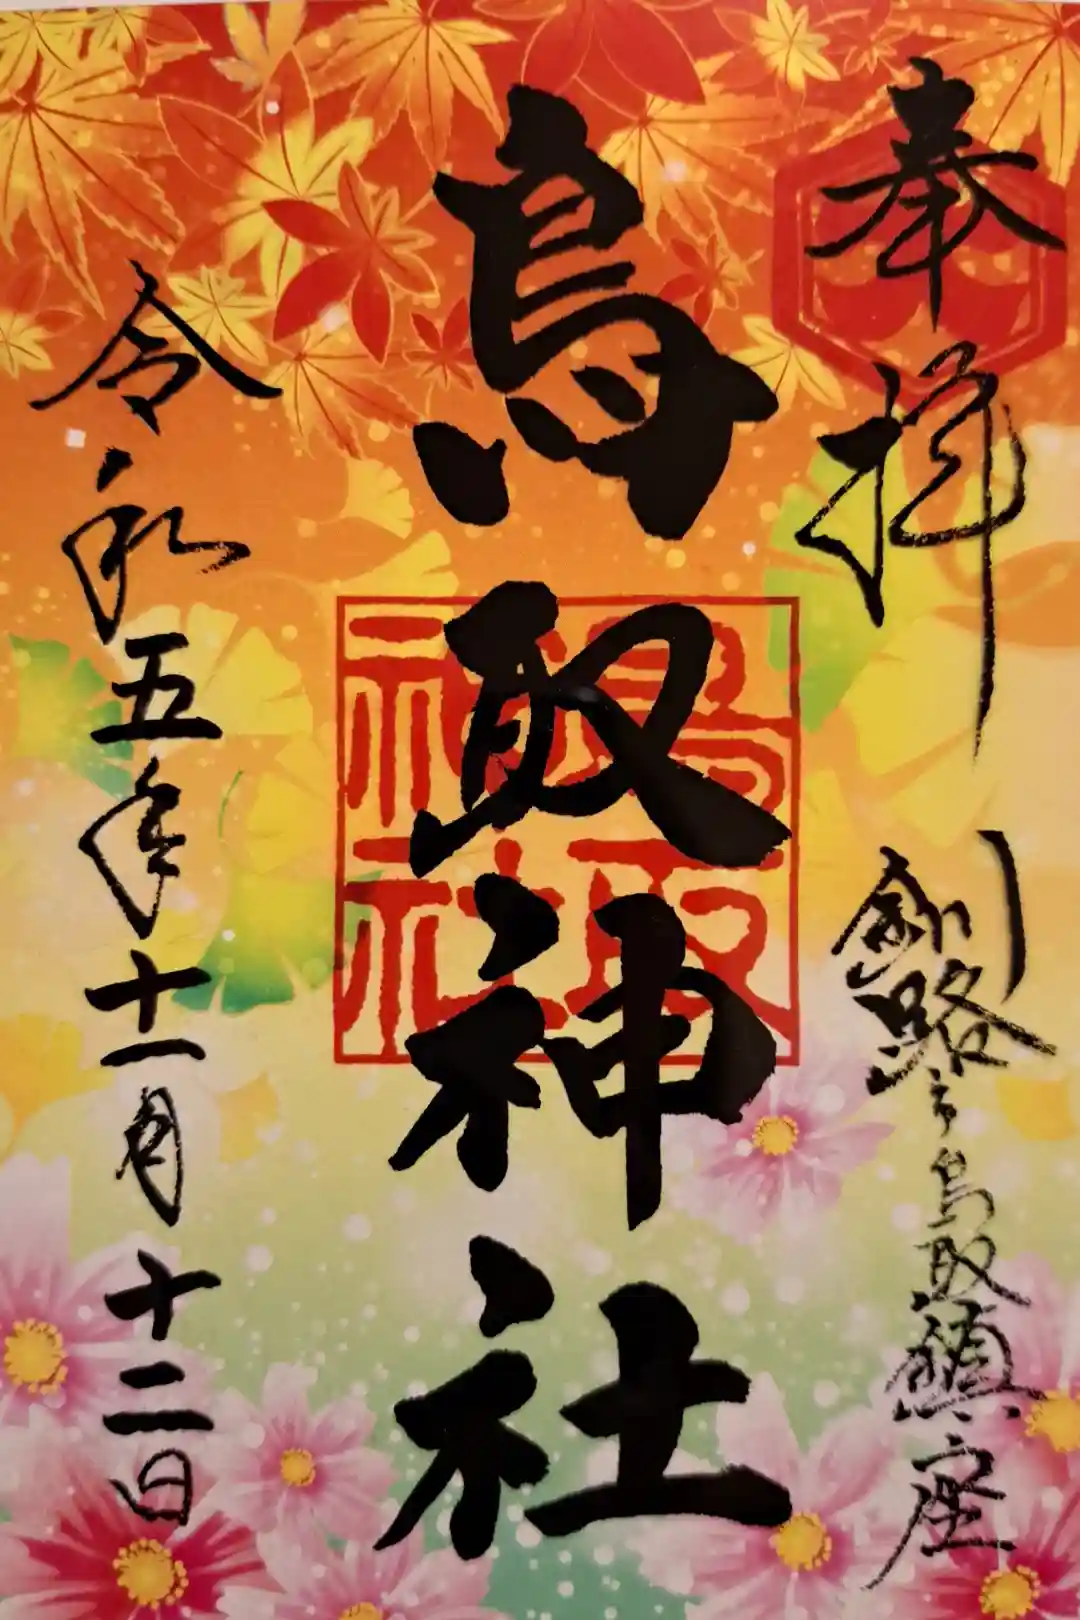 奉拝
釧路市鳥取鎮座
鳥取神社
鳥取
神社
令和五年十一月十二日